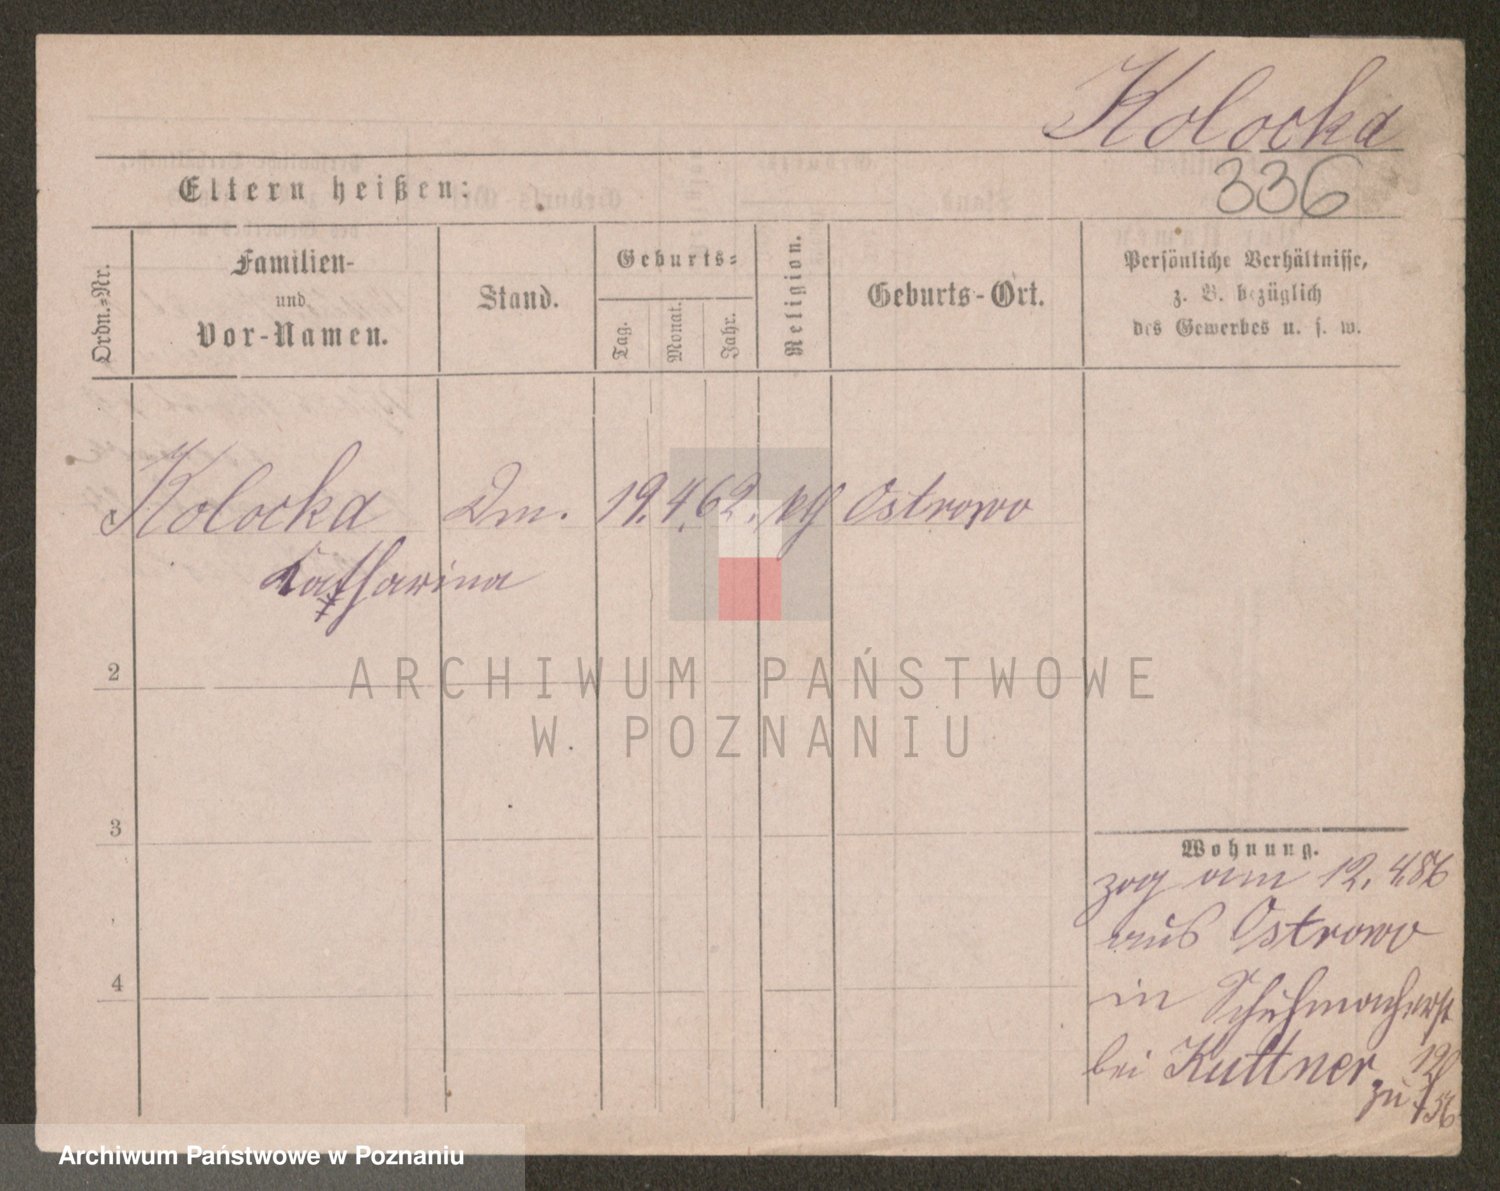 Kolocka
336
Eltern heißen:
Ordn.=Nr.
Familien-
und
Vor-Namen.
Stand.
Geburts=
Tag.
Monat.
Jahr.
Religion.
Geburts-Ort.
Persönliche Verhältnisse,
z. B. bezüglich
des Gewerbes u. s. w.
Kolocka
Dm. 19. 4. 62. kth Ostrowo
Katharina
2
3
4
ARCHIWUM PAŃSTWOWE
W POZNANIU
Wohnung.
zog am 12. 4. 86
aus Ostrowo
in Schuhmacherst
bei Kuttner
zu
Archiwum Państwowe w Poznaniu